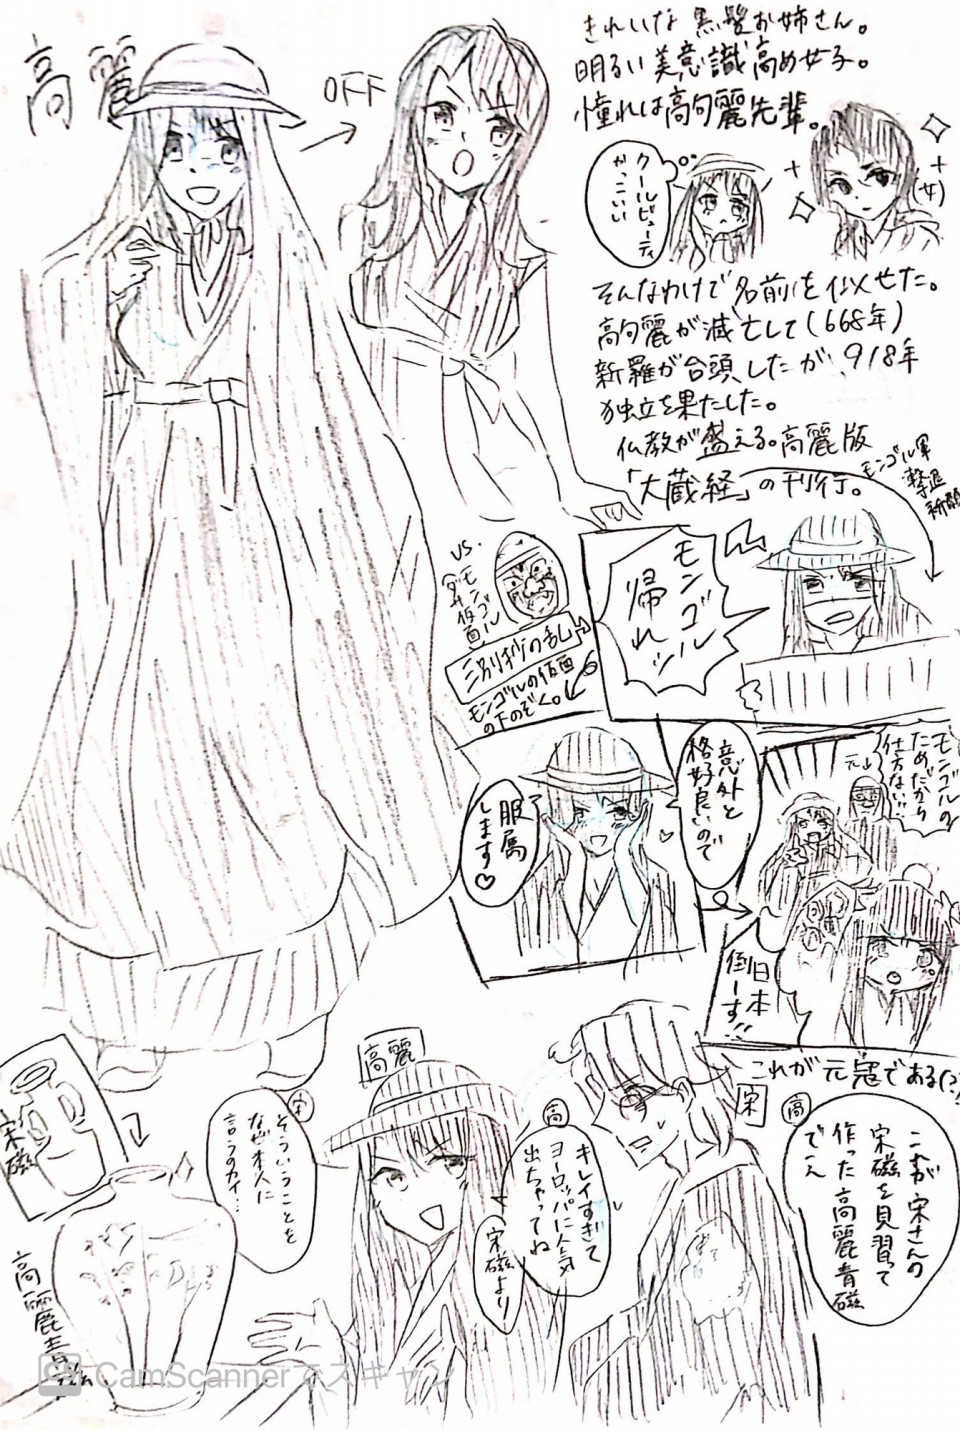 高麗
OFF
きれいな黒髪お姉さん。
明るい美意識高め女子。
憧れは高句麗先輩。
クールビューティ
かっこいい
(女)
そんなわけで名前を似せた。
高句麗が滅亡して(668年)
新羅が台頭したが、918年
独立を果たした。
仏教が盛える。高麗版
「大蔵経」の刊行。
モンゴル軍
撃退
祈願
モンゴル
帰れッ
vs.
モンゴル
仮面
三別抄の乱
モンゴルの仮面
の下のぞく。
意外と
格好良いので
服属
します♡
モンゴルの
ためだから
仕方ない!!
元
日本
倒ーす!!
これが元寇である(?)
宋
高
これが宋さんの
宋磁を見習って
作った高麗青磁
でーえ
高
キレイすぎて
ヨーロッパに人気
出ちゃってね
宋磁より
高麗
宋
そういうことを
なぜ本人に
言うのカイ…
宋磁
高麗青磁
CamScannerでスキャン